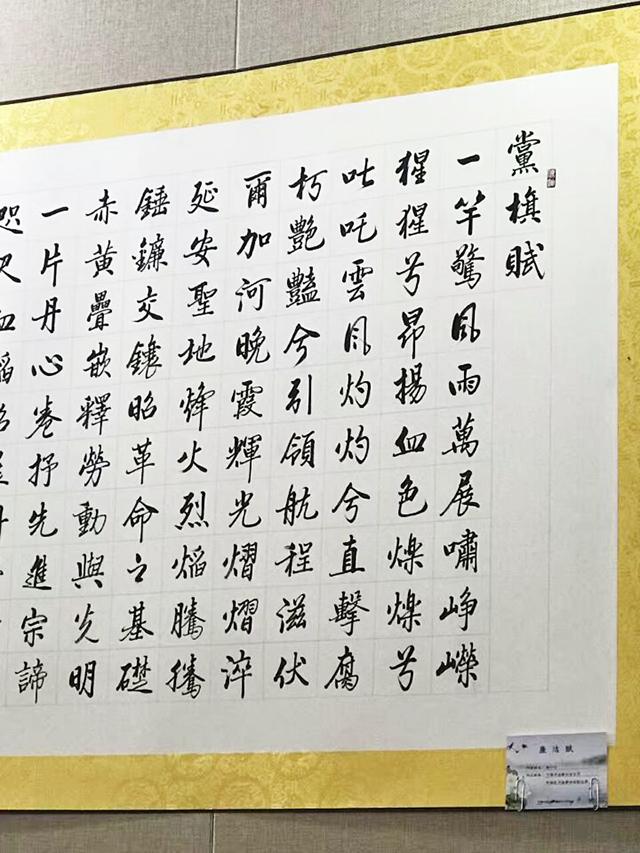 黨旗賦
一竿驚風雨萬展嘯崢嶸
猩猩兮昂揚血色爍爍兮
叱吒雲風灼灼兮直擊腐
朽艷豔兮引領航程滋伏
爾加河晚霞輝光熠熠淬
延安聖地烽火烈焰騰騰
錘鐮交鑲昭革命之基礎
赤黃疊嵌釋勞動與光明
一片丹心卷抒先進宗諦
廉洁赋